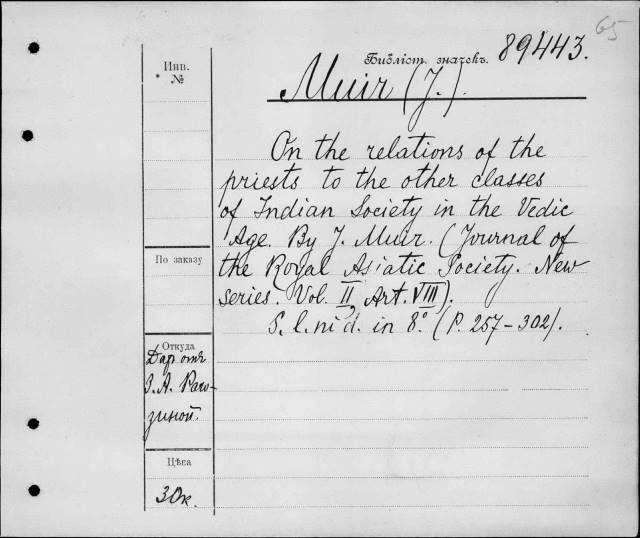 65
Библіот. значекъ. 89443.
Инв.
№
Muir (J.).
On the relations of the
priests to the other classes
of Indian Society in the Vedic
Age. By J. Muir. (Journal of
the Royal Asiatic Society. New
series. Vol. II, Art. VIII).
S. l. ni d. in 8.° (P. 257-302).
По заказу
Откуда
Даръ отъ
З. А. Раго-
зиной.
Цѣна
30к.